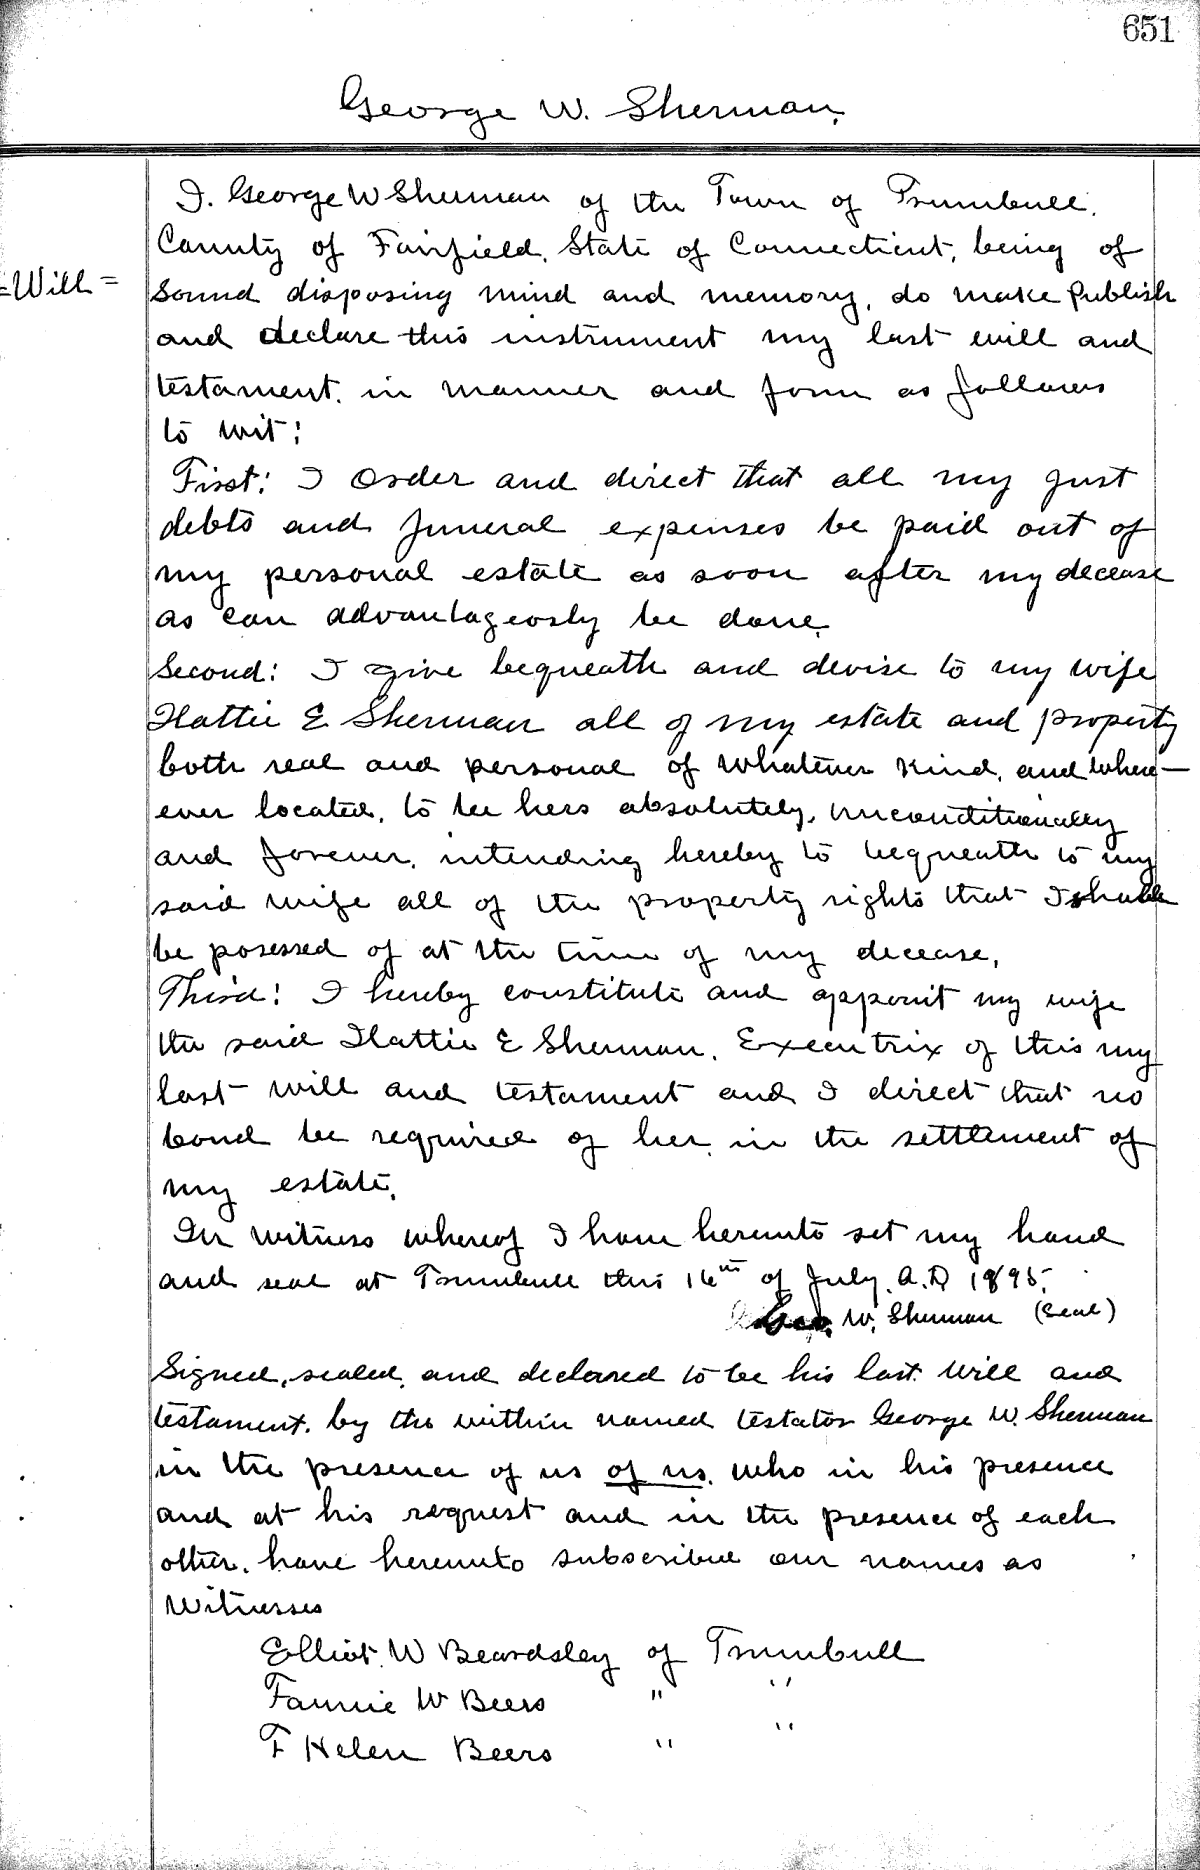 651
George W. Sherman.
I. George W Sherman of the Town of Trumbull.
County of Fairfield. State of Connecticut, being of
=Will=
sound disposing mind and memory, do make publish
and declare this instrument my last will and
testament. in manner and form as follows
to wit:
First: I Order and direct that all my just
debts and funeral expenses be paid out of
my personal estate as soon after my decease
as can advantageosly be done.
Second: I give bequeath and devise to my wife
Hattie E Sherman all of my estate and property
both real and personal of whatever kind, and where-
ever located, to be hers absolutely, unconditionally
and forever, intending hereby to bequeath to my
said wife all of the property rights that I shall
be posessed of at the time of my decease,
Third: I hereby constitute and appoint my wife
the said Hattie E Sherman. Executrix of this my
last will and testament and I direct that no
bond be required of her in the settlement of
my estate.
In witness whereof I have hereunto set my hand
and seal at Trumbull this 16th of July. A.D 1895.
Geo. W. Sherman (Seal)
Signed, sealed, and declared to be his last will and
testament. by the within named testator George W. Sherman
in the presence of us of us. who in his presence
and at his request and in the presence of each
other. have hereunto subscribed our names as
Witnesses
Elliot. W Beardsley of Trumbull
Fannie W Beers " "
F Helen Beers " "